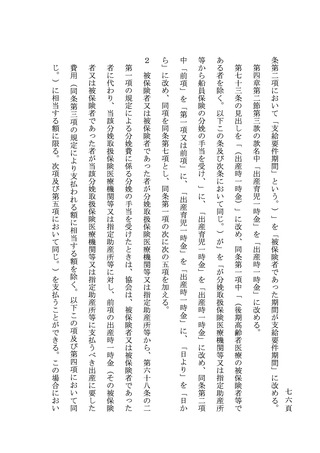 七六頁
条第二項において「支給要件期間」という。）」を「被保険者であった期間が支給要件期間」に改める。
第四章第二節第三款の款名中「出産育児一時金」を「出産時一時金」に改める。
第七十三条の見出しを「（出産時一時金）」に改め、同条第一項中「（後期高齢者医療の被保険者等で
ある者を除く。以下この条及び次条において同じ。）が」を「が分娩取扱保険医療機関等又は指定助産所
等から船員保険の分娩の手当を受け、」に、「出産育児一時金」を「出産時一時金」に改め、同条第二項
中「前項」を「第一項又は前項」に、「出産育児一時金」を「出産時一時金」に、「日より」を「日か
ら」に改め、同項を同条第七項とし、同条第一項の次に次の五項を加える。
２　被保険者又は被保険者であった者が分娩取扱保険医療機関等又は指定助産所等から、第六十八条の二
第一項の規定による分娩費に係る分娩の手当を受けたときは、協会は、被保険者又は被保険者であった
者に代わり、当該分娩取扱保険医療機関等又は指定助産所等に対し、前項の出産時一時金（その被保険
者又は被保険者であった者が当該分娩取扱保険医療機関等又は指定助産所等に支払うべき出産に要した
費用（同条第三項の規定により支払われる額に相当する額を除く。以下この項及び第四項において同
じ。）に相当する額に限る。次項及び第五項において同じ。）を支払うことができる。この場合におい